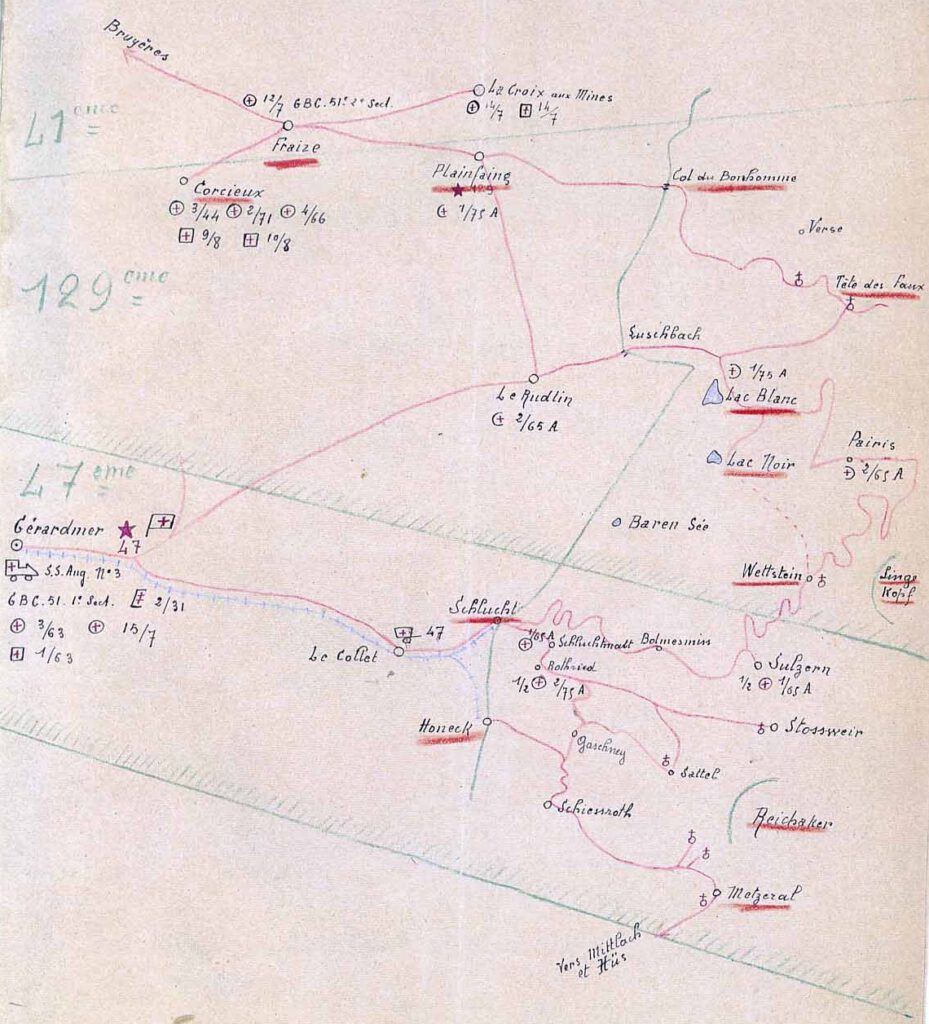 Bruyères
41 eme
12/7 GBC. 51. 2e Sect.
La Croix aux Mines
14/7 14/7
Fraize
Plainfaing
129
1/75 A
Col du Bonhomme
Corcieux
3/44 2/71 4/66
9/8 10/8
Verse
129 eme
Tête des Faux
Luschbach
1/75 A
Lac Blanc
Le Rudlin
2/65 A
Pairis
2/65 A
Lac Noir
47 eme
Gérardmer
47
Baren Sée
S.S. Aug N°3
GBC. 51. 1e Sect. 2/31
3/63 15/7
1/63
Wettstein
Linge
Kopf
Schlucht
47
Le Collet
1/65 A
Schluchtmatt
Bolmesmiss
Sulzern
1/2 1/65 A
Rothried
1/2 2/75 A
Honeck
Stossweir
Gaschney
Sattel
Schiessroth
Reichaker
Metzeral
Vers Mittlach
et Hüs